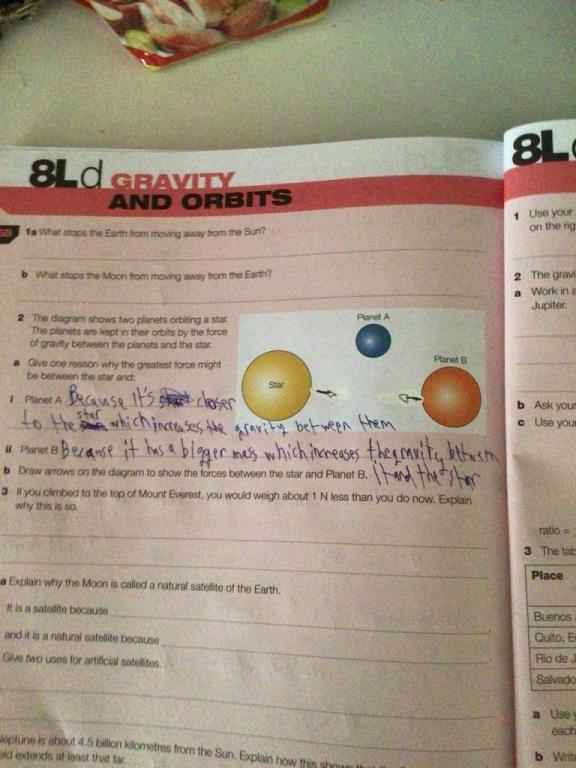 8Ld GRAVITY
AND ORBITS
1a What stops the Earth from moving away from the Sun?
b What stops the Moon from moving away from the Earth?
2 The diagram shows two planets orbiting a star.
The planets are kept in their orbits by the force
of gravity between the planets and the star.
a Give one reason why the greatest force might
be between the star and:
Planet A
Planet B
Star
i Planet A Because it's closer
to the star which increases the gravity between them
ii Planet B Because it has a bigger mass which increases the gravity between
it and the star
b Draw arrows on the diagram to show the forces between the star and Planet B.
3 If you climbed to the top of Mount Everest, you would weigh about 1 N less than you do now. Explain
why this is so.
a Explain why the Moon is called a natural satellite of the Earth.
It is a satellite because
and it is a natural satellite because
Give two uses for artificial satellites.
Neptune is about 4.5 billion kilometres from the Sun. Explain how this shows
extends at least that far.
8L
1 Use your
on the
2 The
a Work in a
Jupiter.
b Ask your
c Use your
ratio =
3 The
Place
Buenos
Quito,
Rio de
a Use
each
b